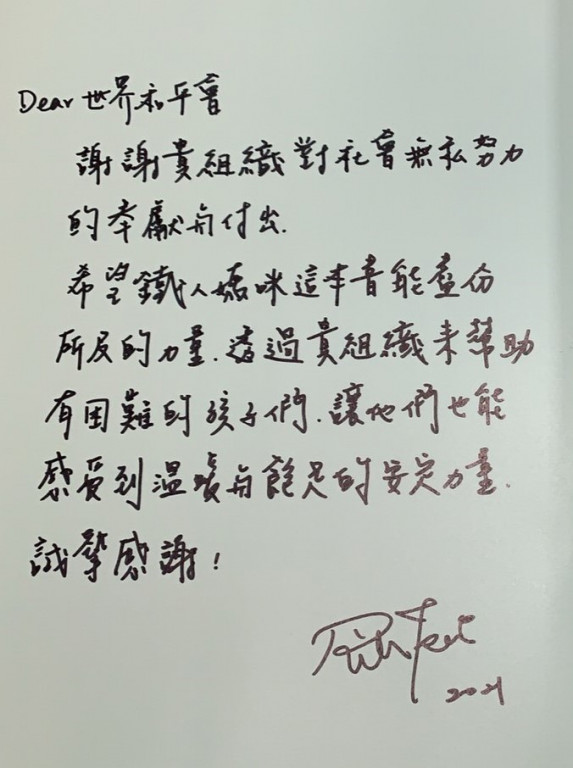 Dear 世界和平會
謝謝貴組織對社會無私努力
的奉獻與付出.
希望鐵人媽咪這本書能盡份
所及的力量.透過貴組織來幫助
有困難的孩子們.讓他們也能
感受到溫暖與飽足的安定力量.
誠摯感謝!
2021